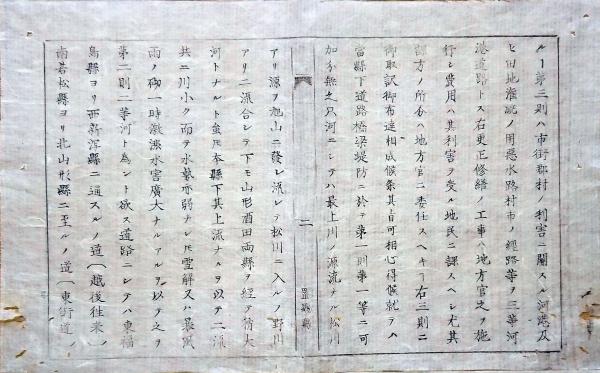 ルー第三則ハ市街郡村ノ利害ニ關スル河港及
ヒ田地灌漑ノ用悪水路村市ノ經路等ヲ三等河
港道路トス右更正修繕ノ工事ハ地方官之ヲ施
行シ費用ハ其利害ヲ受ル地民ニ課スヘシ尤其
課方ノ所分ハ地方官ニ委任スヘキ
右三則ニ
御取訳御布達相成候条其旨可相心得候就テハ
當縣下道路橋梁堤防ニ於テ第一則第一等ニ可
加分無之只河ニシテハ最上川ノ源流ナル松川
二
置賜縣
アリ源ヲ旭山ニ發シ流レテ松川ニ入ル
野川
アリ二流合シテ下モ山形酒田両縣ヲ経テ
大
河トナルト雖
本縣下其上流ナルヲ以テ二派
共ニ川小ク而テ水勢亦弱ナレ
雪解又ハ暴風
雨ノ砌一時激漲水害廣大ナルアルヲ以テ之ヲ
第二則二等河ト為シト欲ス道路ニシテハ東福
島縣ヨリ西新潟縣ニ通スルノ道(越後往来)
南若松縣ヨリ北山形縣ニ至ルノ道(東街道)